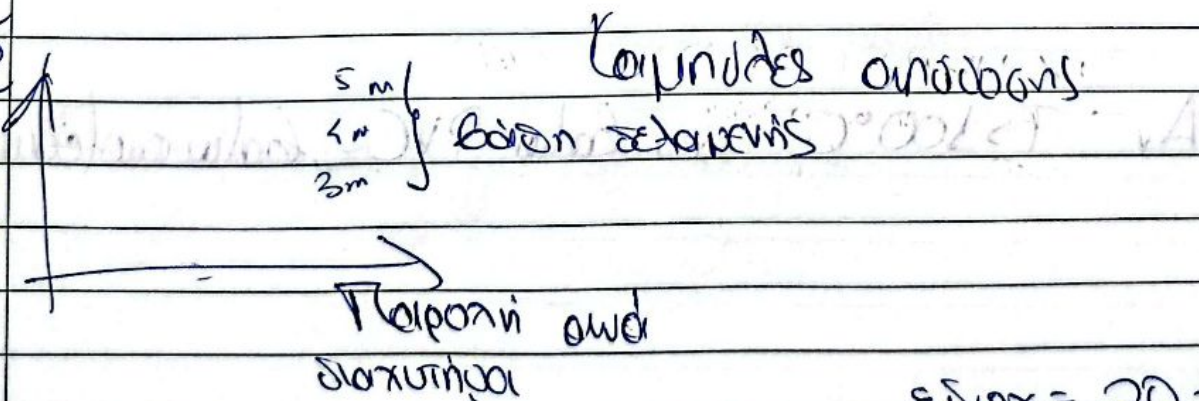 Καμπύλες απόδοσης
5 m
4 m
3 m
βάθη δεξαμενής
Παροχή ανά
διαχυτήρα